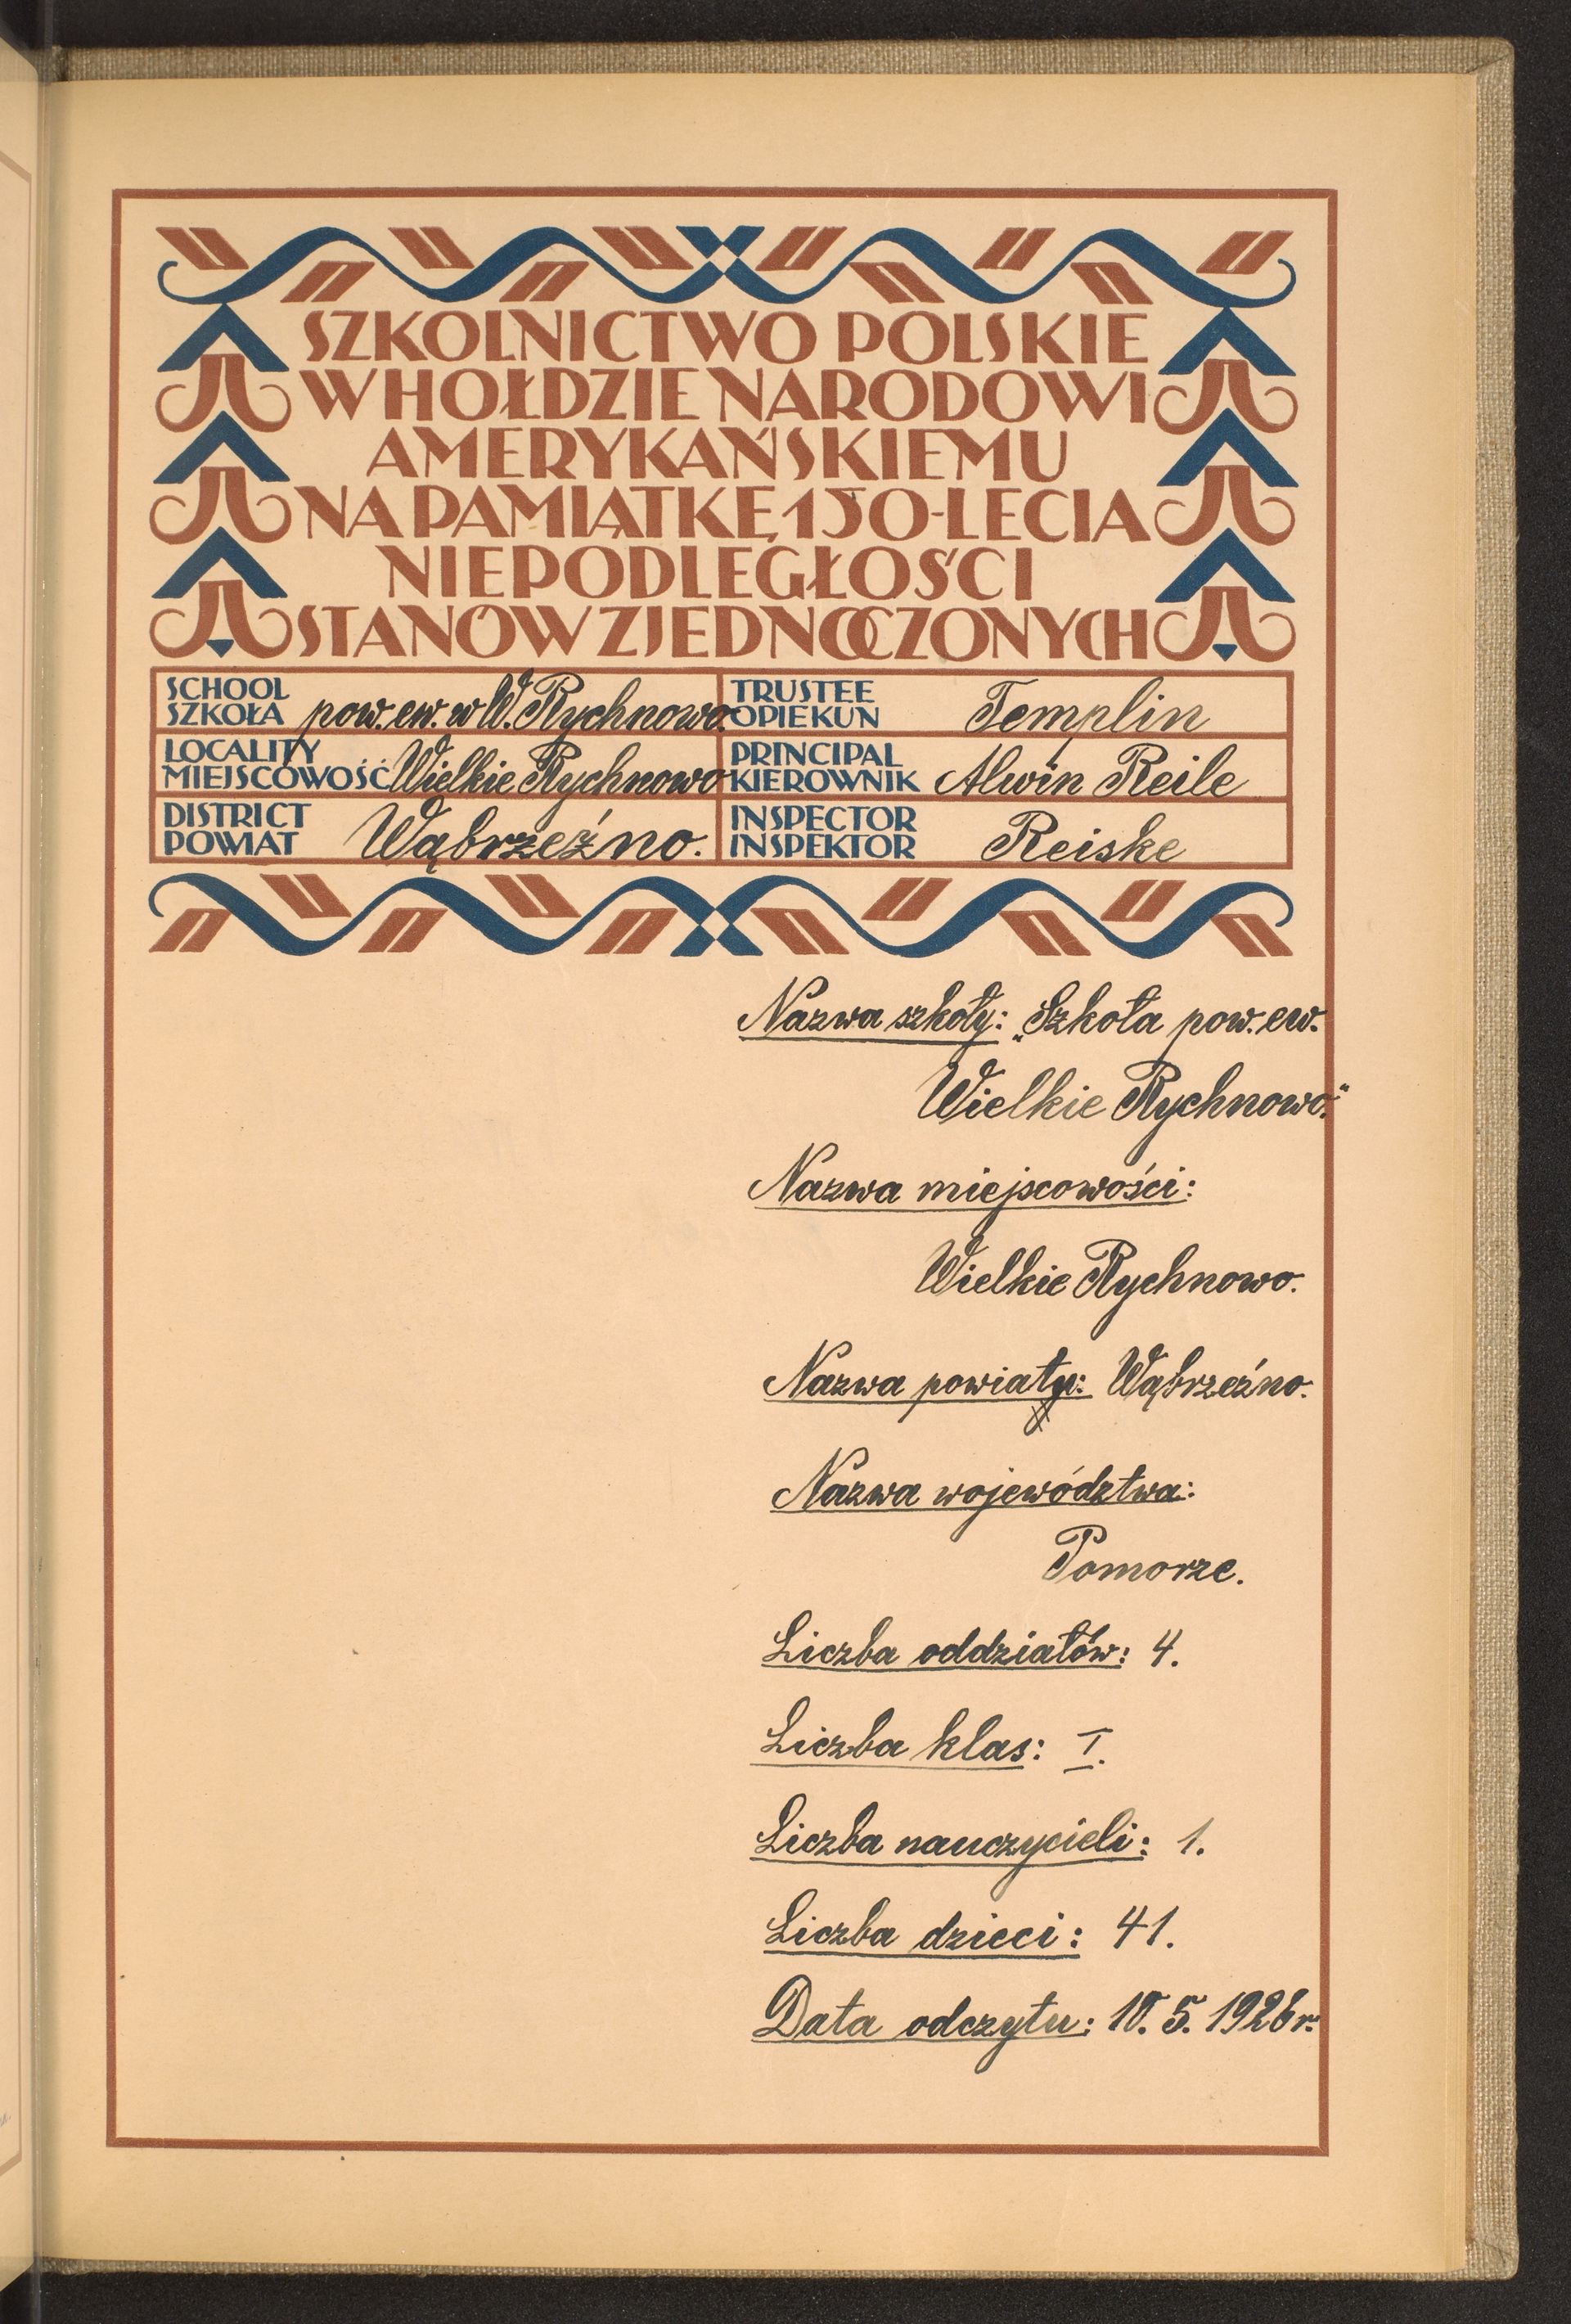 SZKOLNICTWO POLSKIE
W HOŁDZIE NARODOWI
AMERYKAŃSKIEMU
NA PAMIĄTKĘ 150-LECIA
NIEPODLEGŁOŚCI
STANÓW ZJEDNOCZONYCH
SCHOOL
SZKOŁA pow. ew. w W. Rychnowo.
TRUSTEE
OPIEKUN Templin
LOCALITY
MIEJSCOWOŚĆ Wielkie Rychnowo
PRINCIPAL
KIEROWNIK Alwin Reile
DISTRICT
POWIAT Wąbrzeźno.
INSPECTOR
INSPEKTOR Reiske
Nazwa szkoły: „Szkoła pow. ew.
Wielkie Rychnowo."
Nazwa miejscowości:
Wielkie Rychnowo.
Nazwa powiatu: Wąbrzeźno.
Nazwa województwa:
Pomorze.
Liczba oddziałów: 4.
Liczba klas: I.
Liczba nauczycieli: 1.
Liczba dzieci: 41.
Data odczytu: 10. 5. 1926 r.